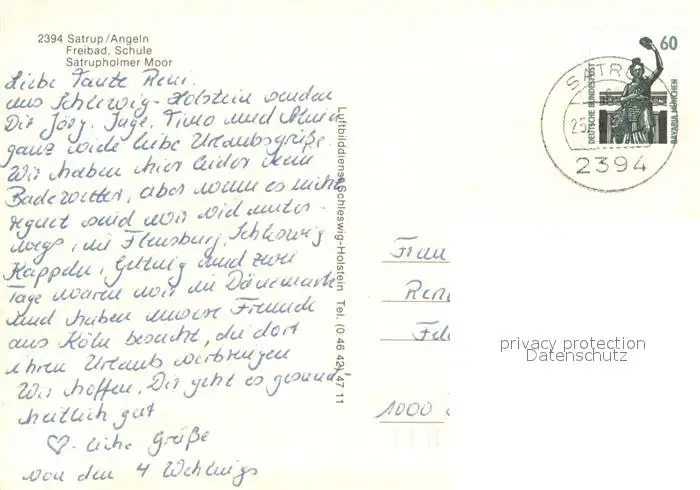 2394 Satrup/Angeln
Freibad, Schule
Satrupholmer Moor
Liebe Tante Reni.
aus Schleswig-Holstein senden
Dir Jörg, Inge, Timo und
ganz viele liebe Urlaubsgrüße.
Wir haben hier leider kein
Badewetter, aber wenn es nicht
regnet sind wir viel unter-
wegs, in Flensburg, Schleswig
Kappeln, und zwei
Tage waren wir in Dänemark
und haben unsere Freunde
aus Köln besucht, die dort
ihren Urlaub verbringen
Wir hoffen, Dir geht es gesund-
heitlich gut
♡-liche Grüße
von den 4
Luftbilddienst Schleswig-Holstein Tel. (0 46 42) 47 11
60
DEUTSCHE BUNDESPOST
BAVARIA MÜNCHEN
SATRUP
25.
2394
Frau
Ren
Fel
1000
privacy protection
Datenschutz